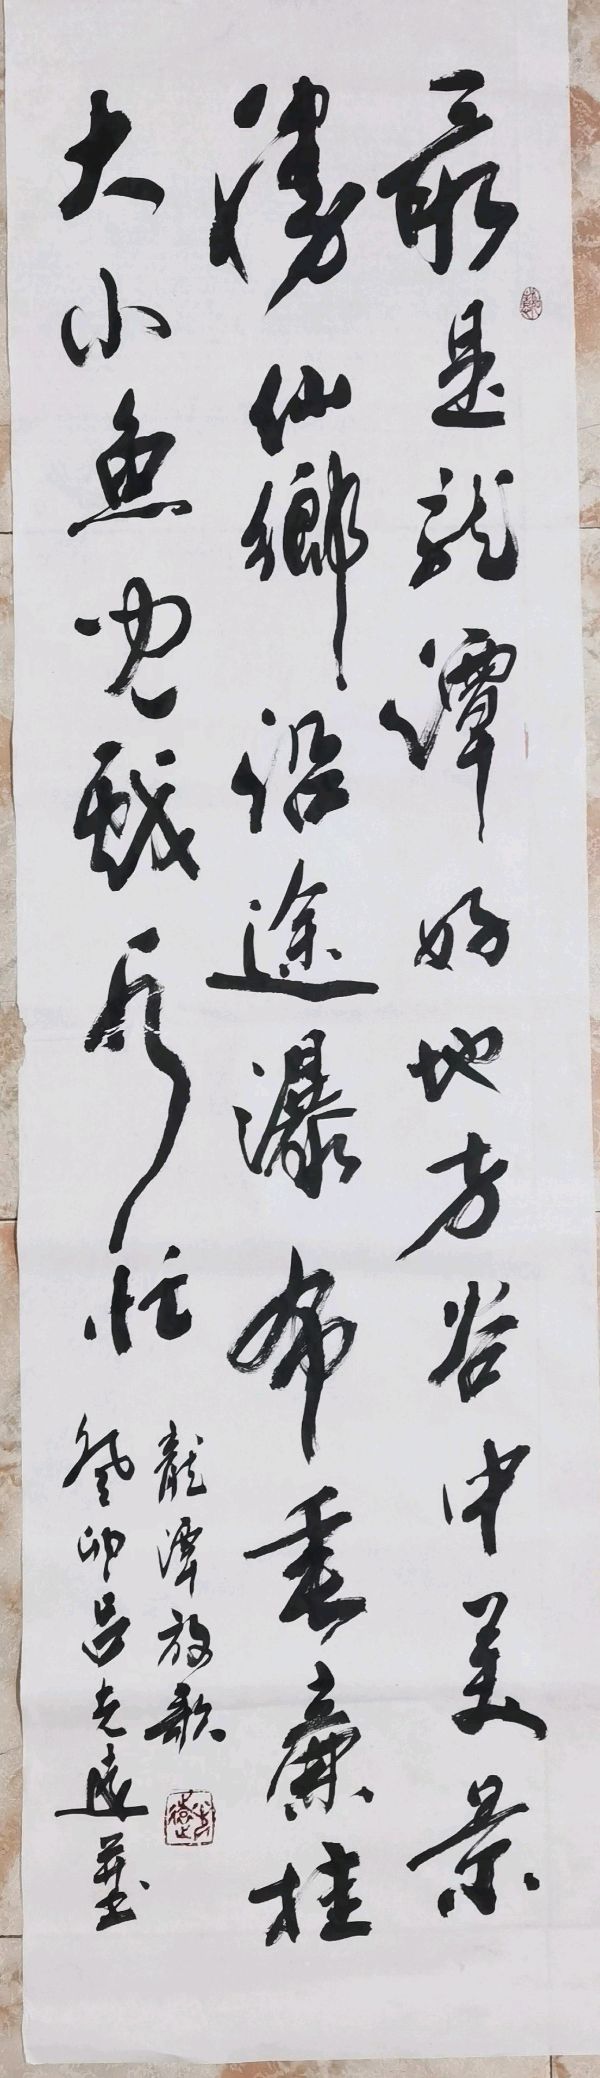 最是龍潭好地方谷中美景
勝仙鄉沿途瀑布垂簾挂
大小魚兒戲水忙
龍潭放歌
癸卯呂光遠墨